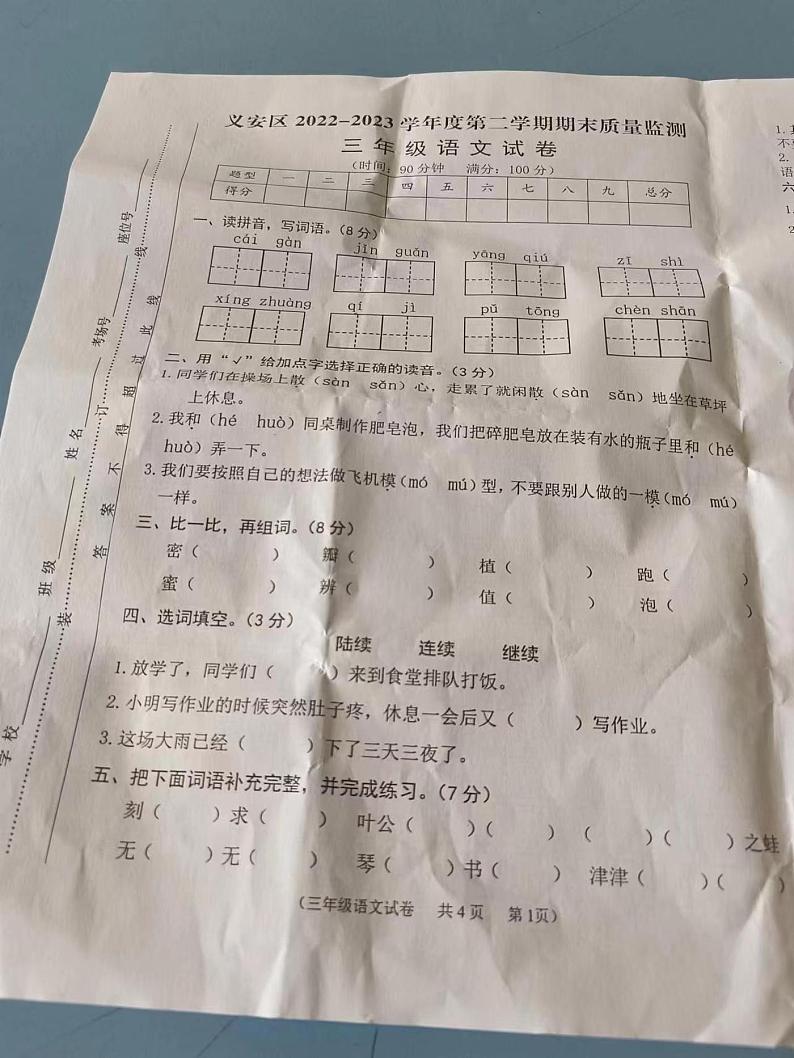 义安区2022-2023学年度第二学期期末质量监测
三年级语文试卷
（时间：90分钟 满分：100分）
题型 一 二 三 四 五 六 七 八 九 总分
得分
一、读拼音，写词语。（8分）
cái gàn jīn guǎn yāng qiú zī shì
xíng zhuàng qí jì pǔ tōng chèn shān
二、用“√”给加点字选择正确的读音。（3分）
1.同学们在操场上散（sàn sǎn）心，走累了就闲散（sàn sǎn）地坐在草坪
上休息。
2.我和（hé huò）同桌制作肥皂泡，我们把碎肥皂放在装有水的瓶子里和（hé
huò）弄一下。
3.我们要按照自己的想法做飞机模（mó mú）型，不要跟别人做的一模（mó mú）
一样。
三、比一比，再组词。（8分）
密（ ） 瓣（ ） 植（ ） 跑（ ）
蜜（ ） 辨（ ） 值（ ） 泡（ ）
四、选词填空。（3分）
陆续 连续 继续
1.放学了，同学们（ ）来到食堂排队打饭。
2.小明写作业的时候突然肚子疼，休息一会后又（ ）写作业。
3.这场大雨已经（ ）下了三天三夜了。
五、把下面词语补充完整，并完成练习。（7分）
刻（ ）求（ ） 叶公（ ）（ ） （ ）（ ）之蛙
无（ ）无（ ） 琴（ ）书（ ） 津津（ ）（ ）
（三年级语文试卷 共4页 第1页）
学校 班级 姓名 考场号 座位号
装 订 线
答案不得超过此线
1.
不要
2.
语
六
1.
2